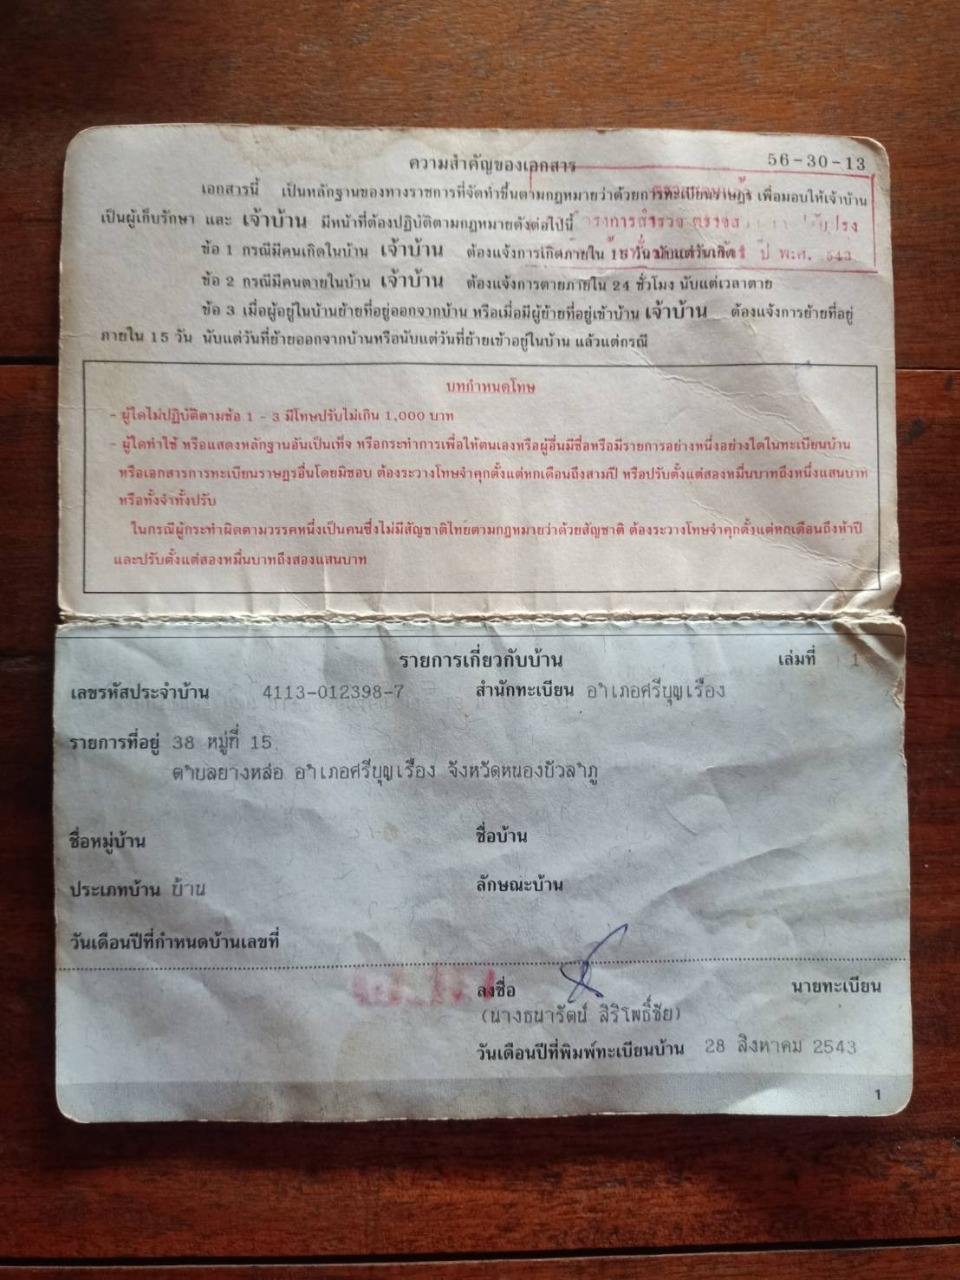 ความสำคัญของเอกสาร
56-30-13
เอกสารนี้ เป็นหลักฐานของทางราชการที่จัดทำขึ้นตามกฎหมายว่าด้วยการทะเบียนราษฎร เพื่อมอบให้เจ้าบ้าน
เป็นผู้เก็บรักษา และ เจ้าบ้าน มีหน้าที่ต้องปฏิบัติตามกฎหมายดังต่อไปนี้
ข้อ 1 กรณีมีคนเกิดในบ้าน เจ้าบ้าน ต้องแจ้งการเกิดภายใน 15 วัน นับแต่วันเกิด
ปี พ.ศ.
ข้อ 2 กรณีมีคนตายในบ้าน เจ้าบ้าน ต้องแจ้งการตายภายใน 24 ชั่วโมง นับแต่เวลาตาย
ข้อ 3 เมื่อผู้อยู่ในบ้านย้ายที่อยู่ออกจากบ้าน หรือเมื่อมีผู้ย้ายที่อยู่เข้าบ้าน เจ้าบ้าน ต้องแจ้งการย้ายที่อยู่
ภายใน 15 วัน นับแต่วันที่ย้ายออกจากบ้านหรือนับแต่วันที่ย้ายเข้าอยู่ในบ้าน แล้วแต่กรณี
บทกำหนดโทษ
- ผู้ใดไม่ปฏิบัติตามข้อ 1 - 3 มีโทษปรับไม่เกิน 1,000 บาท
- ผู้ใดทำใช้ หรือแสดงหลักฐานอันเป็นเท็จ หรือกระทำการเพื่อให้ตนเองหรือผู้อื่นมีชื่อหรือมีรายการอย่างหนึ่งอย่างใดในทะเบียนบ้าน
หรือเอกสารการทะเบียนราษฎรอื่นโดยมิชอบ ต้องระวางโทษจำคุกตั้งแต่หกเดือนถึงสามปี หรือปรับตั้งแต่สองหมื่นบาทถึงหนึ่งแสนบาท
หรือทั้งจำทั้งปรับ
ในกรณีผู้กระทำผิดตามวรรคหนึ่งเป็นคนซึ่งไม่มีสัญชาติไทยตามกฎหมายว่าด้วยสัญชาติ ต้องระวางโทษจำคุกตั้งแต่หกเดือนถึงห้าปี
และปรับตั้งแต่สองหมื่นบาทถึงสองแสนบาท
รายการเกี่ยวกับบ้าน
เล่มที่ 1
เลขรหัสประจำบ้าน 4113-012398-7 สำนักทะเบียน อำเภอศรีบุญเรือง
รายการที่อยู่ 38 หมู่ที่ 15
ตำบลยางหล่อ อำเภอศรีบุญเรือง จังหวัดหนองบัวลำภู
ชื่อหมู่บ้าน ชื่อบ้าน
ประเภทบ้าน บ้าน ลักษณะบ้าน
วันเดือนปีที่กำหนดบ้านเลขที่
ลงชื่อ นายทะเบียน
(นางธนารัตน์ สิริโพธิ์ชัย)
วันเดือนปีที่พิมพ์ทะเบียนบ้าน 28 สิงหาคม 2543
1